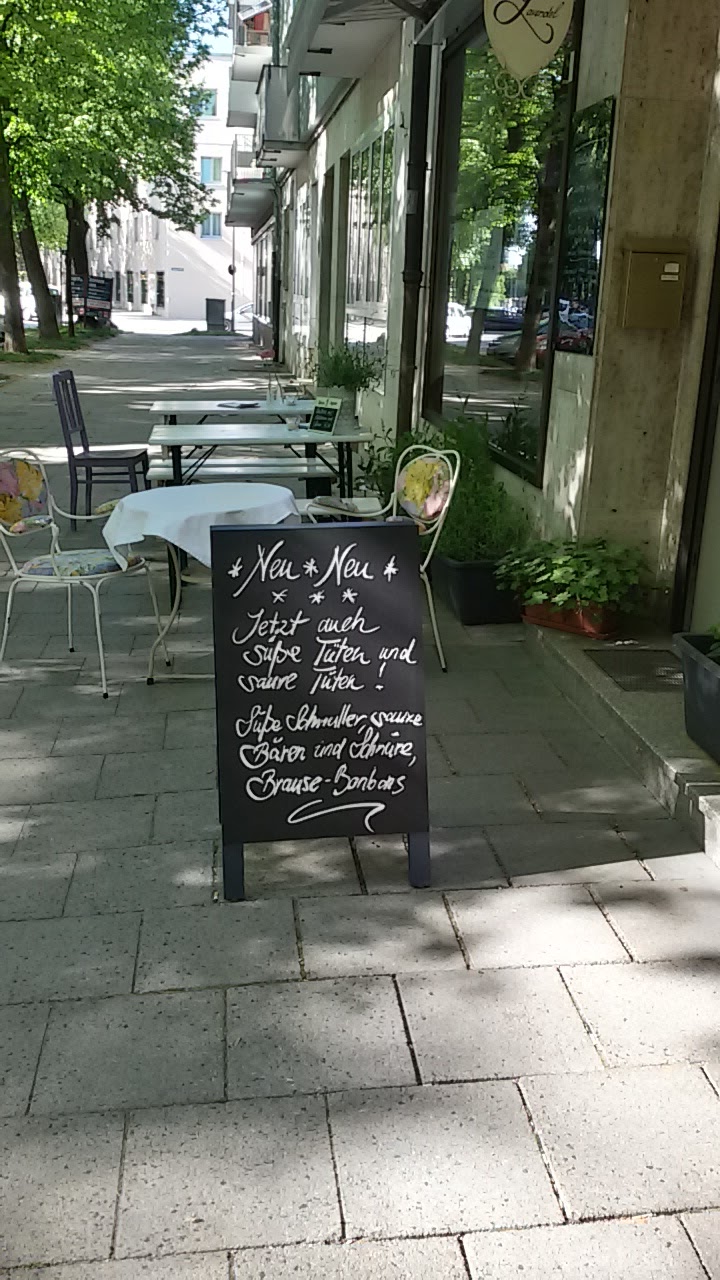 *Neu*Neu*
* * *
Jetzt auch
süße Tüten und
saure Tüten!
Süße Schnuller, saure
Bären und Schnüre,
Brause-Bonbons